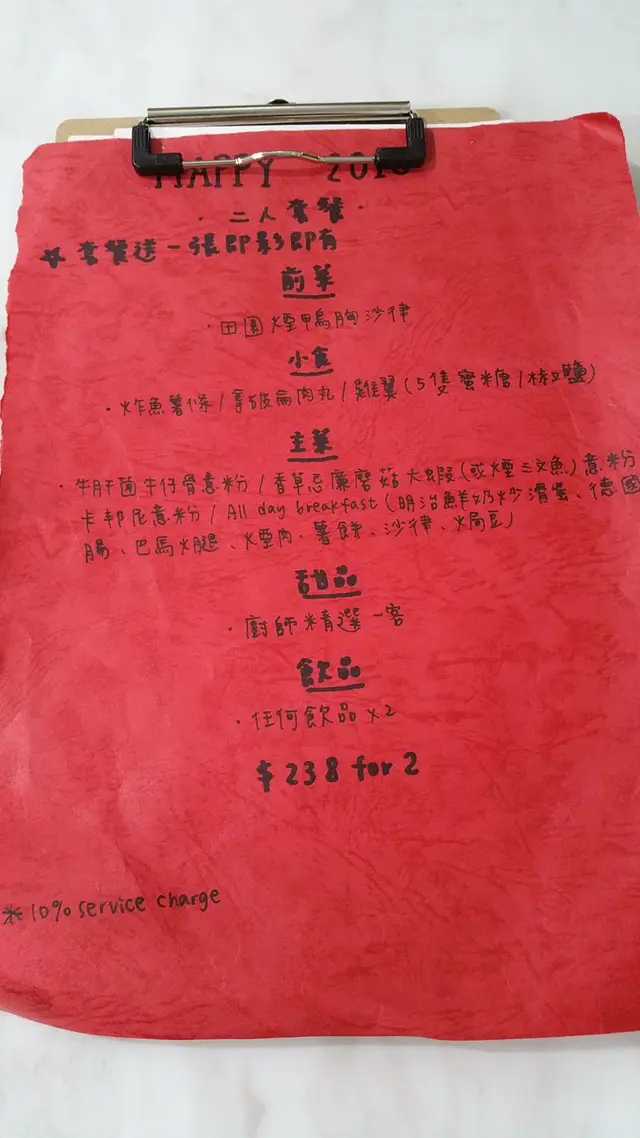 HAPPY 2018
· 二人套餐 ·
☆ 套餐送一張即影即有
前菜
· 田園煙鴨胸沙律
小食
· 炸魚薯條 / 拿破崙肉丸 / 雞翼 (5隻 蜜糖 / 椒鹽)
主菜
· 牛肝菌牛仔骨意粉 / 香草忌廉磨菇大蝦 (或煙三文魚) 意粉
卡邦尼意粉 / All day breakfast (明治鮮奶炒滑蛋、德國
腸、巴馬火腿、煙肉、薯餅、沙律、焗豆)
甜品
· 廚師精選一客
飲品
· 任何飲品 x2
$ 238 for 2
* 10% service charge